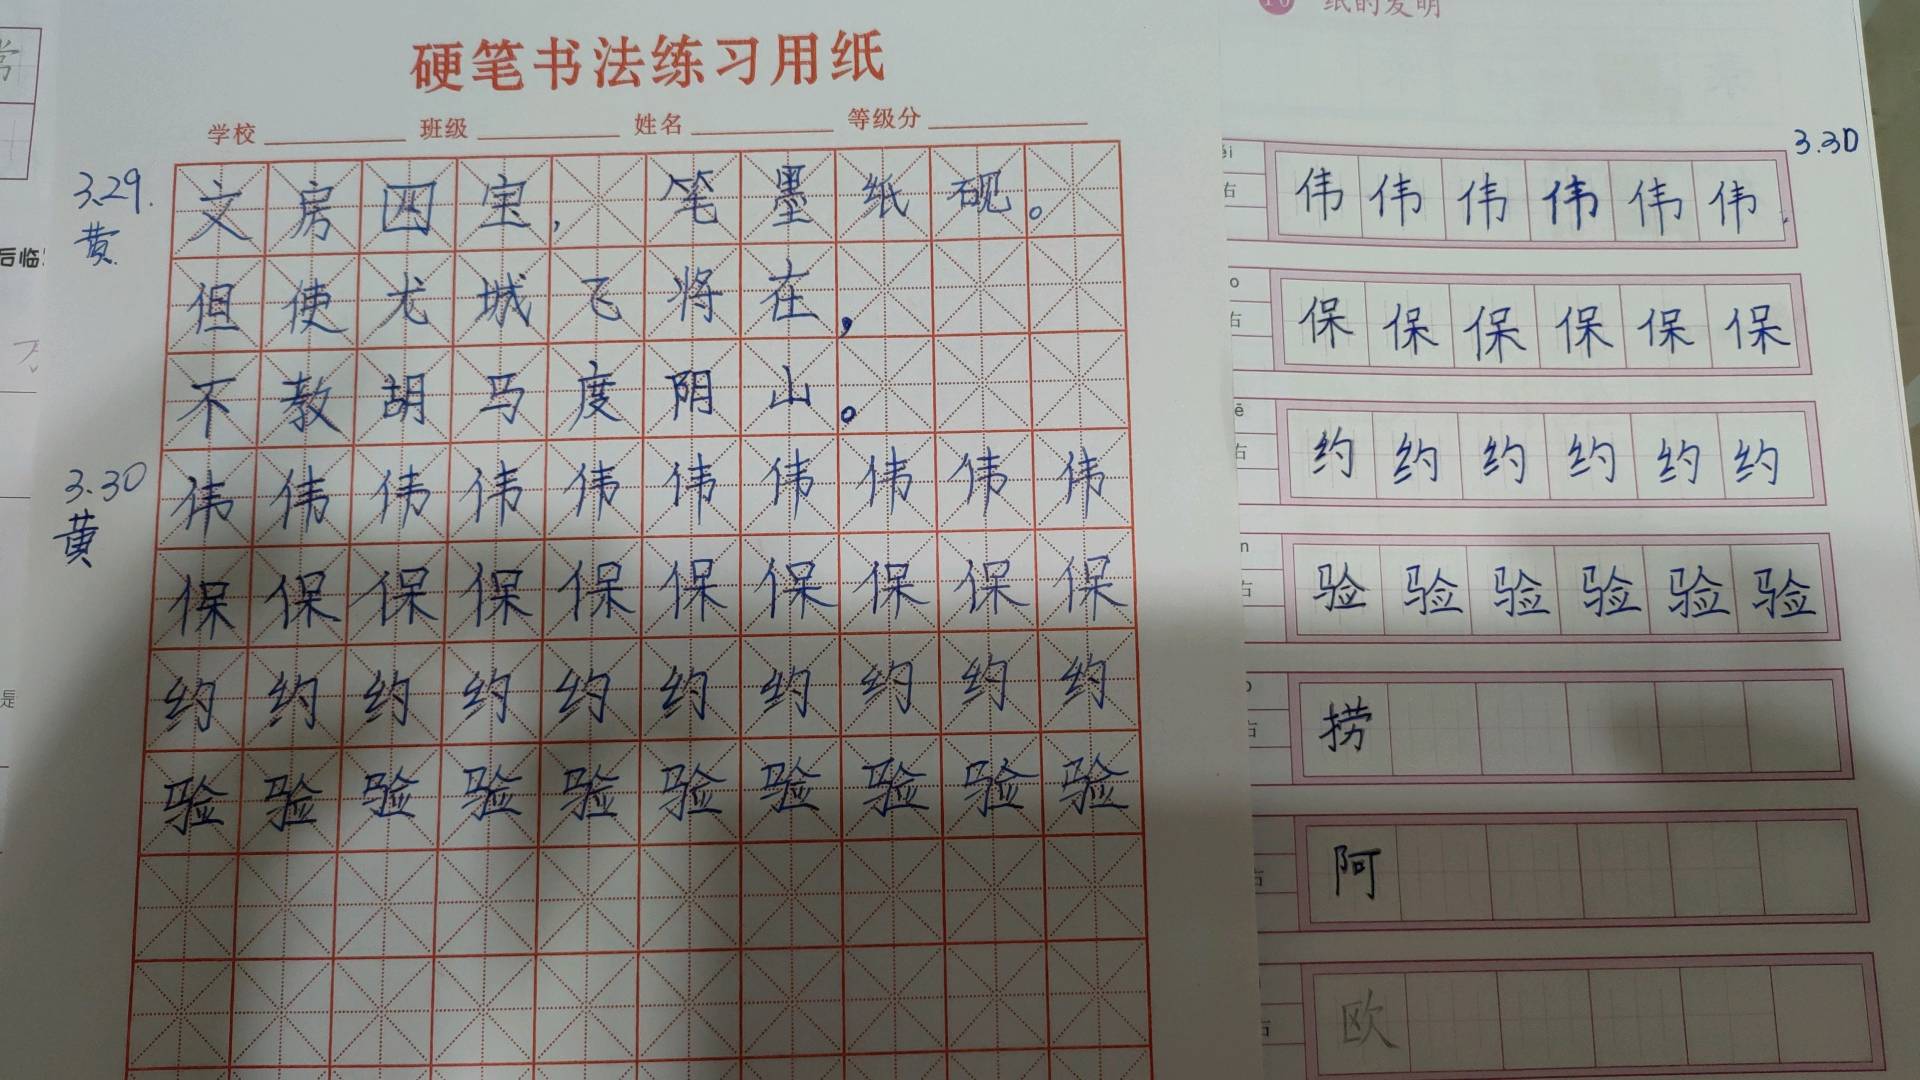 硬笔书法练习用纸
学校 班级 姓名 等级分
3.29.
黄
文房四宝,笔墨纸砚。
但使尤城飞将在,
不教胡马度阴山。
3.30
黄
伟伟伟伟伟伟伟伟伟伟
保保保保保保保保保保
约约约约约约约约约约
验验验验验验验验验验
常
后临
是
纸的发明
3.30
右
伟伟伟伟伟伟
右
保保保保保保
右
约约约约约约
右
验验验验验验
右
捞
右
阿
右
欧